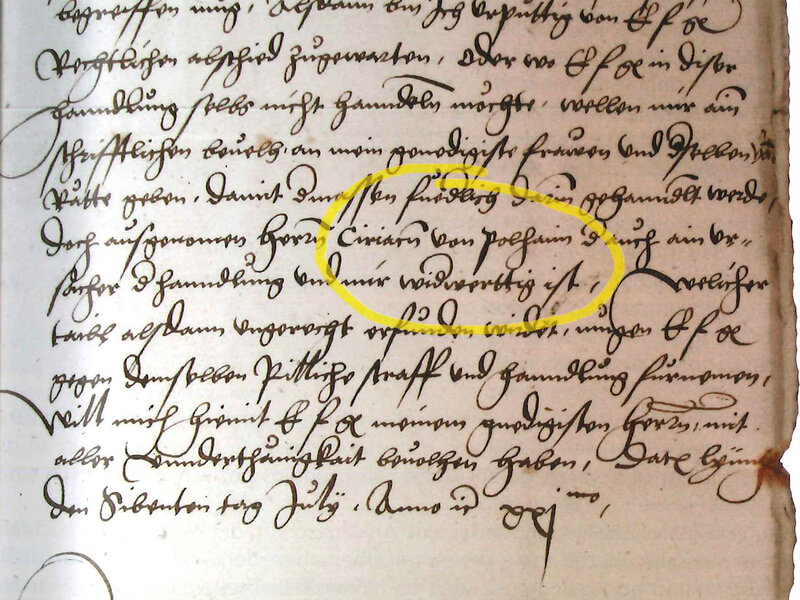 begreiffen mug, Alsdann bin Ich urputtig von E f gn
Rechtlichen abschied zugewarten, Oder wo E f gn in diser
hanndlung selbs nicht hanndeln mochte, wellen mir ain
schrifftlichen beuelh an mein genedigiste frawen und dselben
Rätte geben, damit dmassen fudlich darin gehanndlt werde,
doch ausgenomen herrn Ciriacn von polhaim d auch ain ur-
sacher d hanndlung und mir widwerttig ist, welicher
taill alsdann ungerecht erfunden wirdet, mugen E f gn
gegen demselben Pilliche straff und hanndlung furnemen,
Will mich hiemit E f gn meinem gnedigisten herrn, mit
aller Unnderthanigkait beuolhen haben, Datz lynntz
den Sibenten tag July, Anno ic xxj mo,